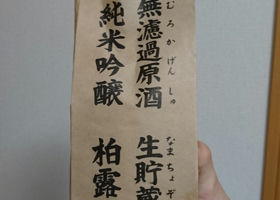 無濾過原酒
むろかげんしゅ
生貯蔵
なまちょぞ
純米吟醸
柏露